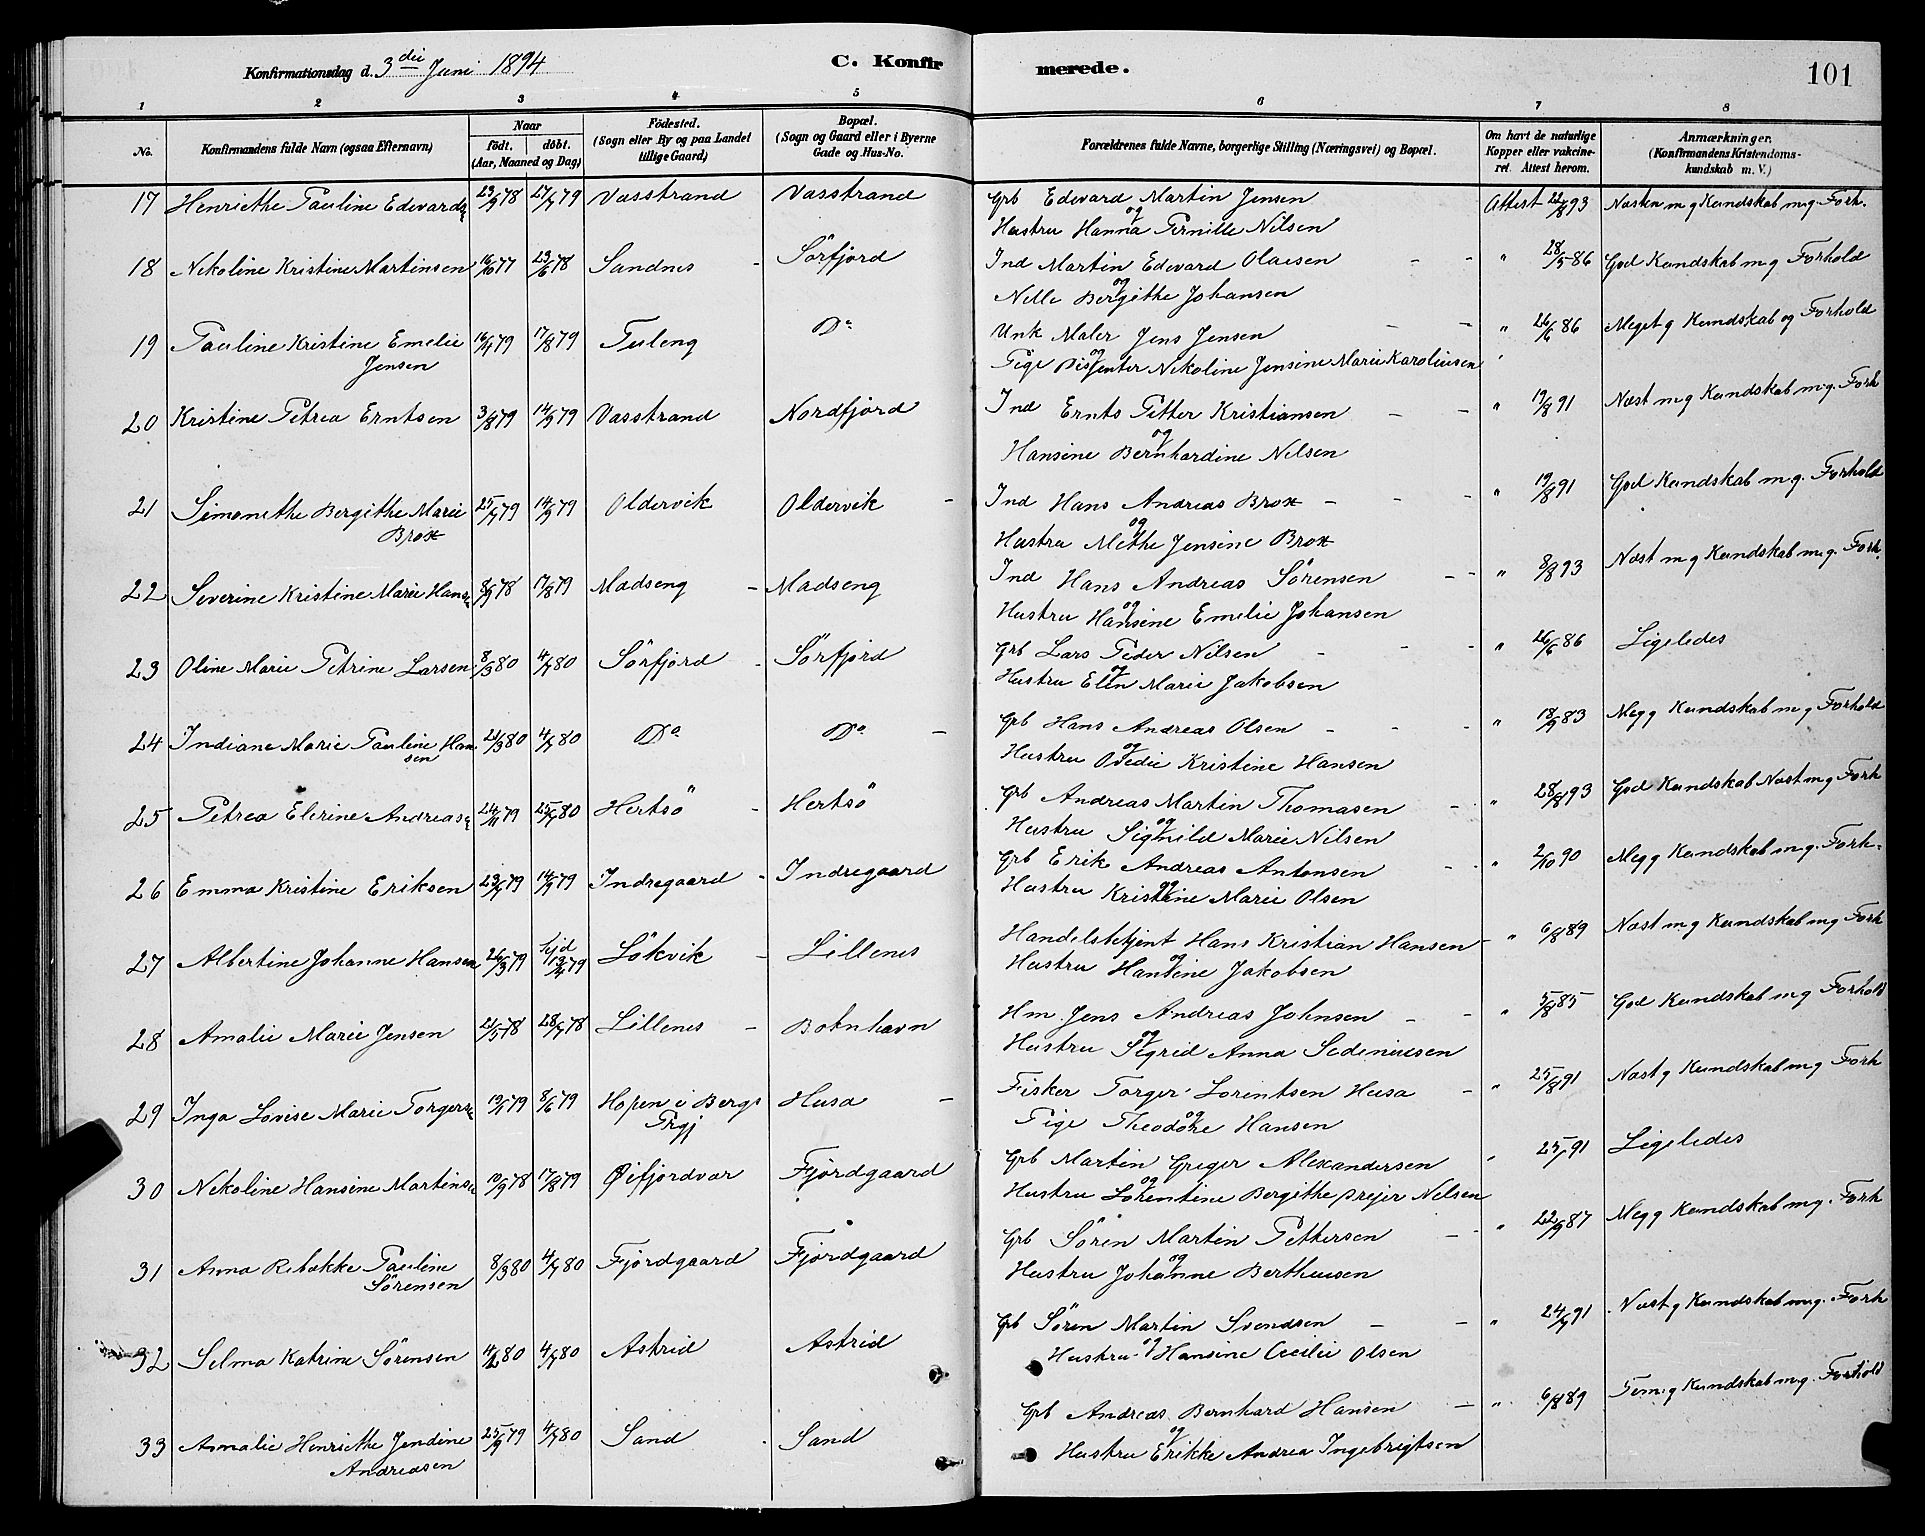 Konfirmationsdag d. 3die Juni 1894
C. Konfirmerede.
101
1 2 3 4 5 6 7 8
No. Konfirmandens fulde Navn (ogsaa Efternavn) Naar født. døbt. (Aar, Maaned og Dag) Födested. (Sogn eller By og paa Landet tillige Gaard) Bopæl. (Sogn og Gaard eller i Byerne Gade og Hus-No. Forældrenes fulde Navne, borgerlige Stilling (Næringsvei) og Bopæl. Om havt de naturlige Kopper eller vakcineret. Attest herom. Anmærkninger, (Konfirmandens Kristendomskundskab m. V.)
17 Henriethe Pauline Edvards 23/9 78 27/7 79 Vasstrand Vasstrand Grb Edevard Martin Jensen Attest 22/8 93 Næsten m g Kundskab m.g. Forh.
og Hustru Hanna Pernille Nilsen
18 Nekoline Kristine Martinsen 16/10 77 23/6 78 Sandnes - Sörfjord Ind Martin Edevard Olaisen - - " 28/5 86 God Kundskab m g Forhold
og Nelle Bergithe Johansen
19 Pauline Kristine Emelie Jensen 16/4 79 17/8 79 Tuleng Do Unk Maler Jens Jensen - - " 26/6 86 Meget g Kundskab og Forhold
og Pige Dissenter Nekoline Jensine Marie Karoliusen
20 Kristine Petrea Erntsen 3/8 79 14/9 79 Vasstrand Nordfjord Ind Ernts Petter Kristiansen - - " 19/8 91 Næst m g Kundskab m.g. Forh
og Hansine Bernhardine Nilsen
21 Simonethe Bergithe Marie Brox 25/7 79 14/9 79 Oldervik Oldervik - Ind Hans Andreas Brox - - - " 19/8 91 God Kundskab m.g. Forhold
og Hustru Methe Jensine Brox
22 Severine Kristine Marie Hans 8/9 78 17/8 79 Madseng - Madseng Ind Hans Andreas Sörensen - - " 8/8 93 Næst m g Kundskab m.g. Forh.
og Hustru Hansine Emelie Johansen
23 Oline Marie Petrine Larsen 8/3 80 4/7 80 Sörfjord - Sörfjord Grb Lars Peder Nilsen - - - " 26/6 86 Ligeledes
og Hustru Elen Marie Jakobsen
24 Indiane Marie Pauline Hansen 21/3 80 4/7 80 Do Do - Grb Hans Andreas Olsen - - - " 18/9 83 Meg g Kundskab m g Forhold
og Hustru Ovedie Kristine Hansen
25 Petrea Elerine Andreas 24/11 79 25/7 80 Hertsö - Hertsö Grb Andreas Martin Thomasen - " 28/8 93 God Kundskab Næst m g Forh
og Hustru Signild Marie Nilsen
26 Emma Kristine Eriksen 23/7 79 14/9 79 Indregaard - Indregaard Grb Erik Andreas Antonsen - - " 2/10 90 Meg g Kundskab m.g. Forh.
og Hustru Kristine Marie Olsen
27 Albertine Johanne Hansen 26/3 79 hjd 13/4 79 Lökvik - Lillenes Handelsbetjent Hans Kristian Hansen - " 6/8 89 Næst m g Kundskab m g Forh
og Hustru Hansine Jakobsen
28 Amalie Marie Jensen 21/5 78 28/7 78 Lillenes - Botnhavn Hm. Jens Andreas Johnsen - - " 5/8 85 God Kundskab m g Forhold
og Hustru Sigrid Anna Sedeniusen
29 Inga Lovise Marie Torgers 19/1 79 8/6 79 Hopen i Bergs Prgj Husa - Fisker Torger Lorentsen Husa - " 25/8 91 Næst g Kundskab m g Forh
og Pige Theodore Hansen
30 Nekoline Hansine Martins 10/9 78 17/8 79 Øifjordvær Fjordgaard Grb Martin Greger Alexandersen " 25/7 91 Ligeledes
og Hustru Lorentine Bergithe Prejer Nelsen
31 Anna Rebekke Pauline Sörensen 8/3 80 4/7 80 Fjordgaard Fjordgaard Grb Sören Martin Pettersen - " 22/9 87 Meg g Kundskab m.g. Forh
og Hustru Johanne Bertheusen
32 Selma Katrine Sörensen 4/2 80 4/7 80 Astrid Astrid Grb Sören Martin Svendsen - - " 24/9 91 Næst g Kundskab m.g. Forh
og Hustru Hansine Cecilie Olsen
33 Amalie Henriethe Jendine Andreasen 25/9 79 4/7 80 Sand - Sand Grb Andreas Bernhard Hansen - " 6/8 89 Tem. g Kundskab m.g. Forhold
og Hustru Erikke Andrea Ingebrigtsen